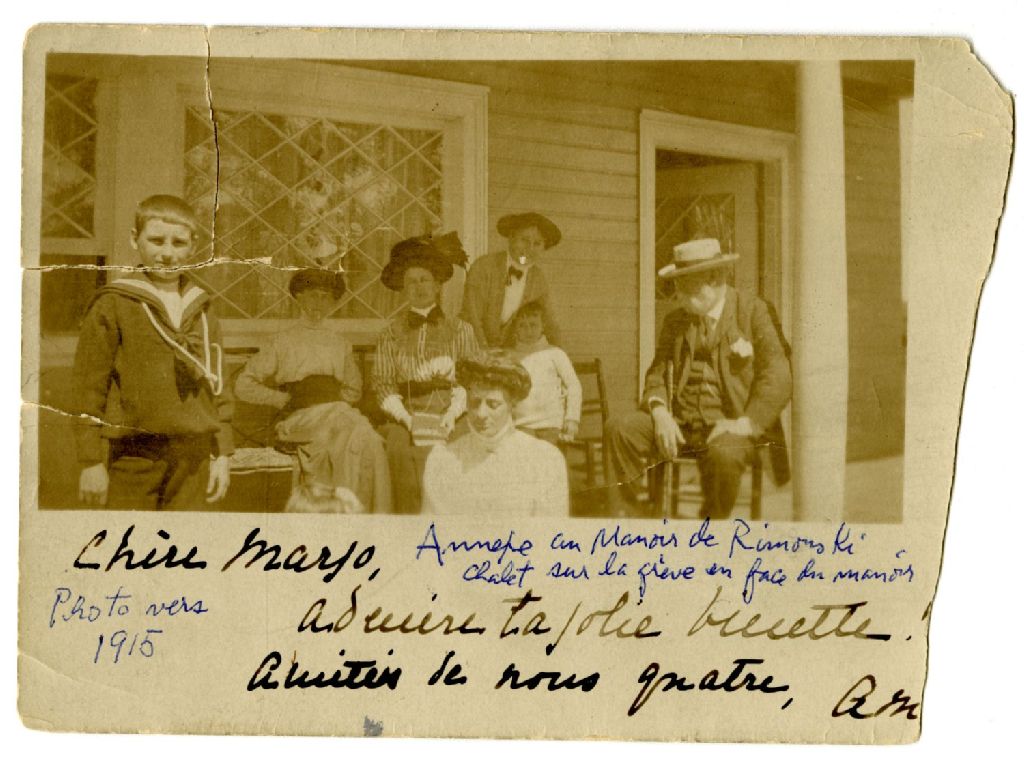 Chère Marjo,
Annexe au Manoir de Rimouski
chalet sur la grève en face du manoir
Photo vers
1915
admire ta jolie binette!
Amitiés de nous quatre,